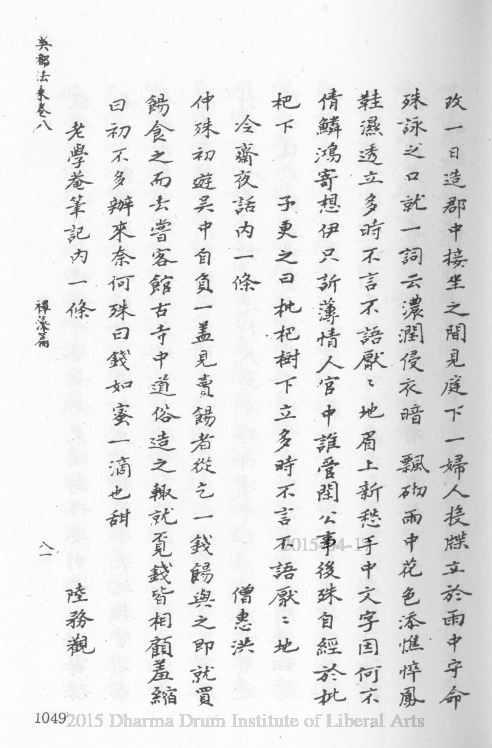 攷一日造郡中接坐之間見庭下一婦人投牒立於雨中守命
殊詠之口就一詞云濃潤侵衣暗飄砌雨中花色添憔悴鳳
鞋濕透立多時不言不語厭〻地眉上新愁手中文字因何不
倩鱗鴻寄想伊只訴薄情人官中誰管閒公事後殊自經於枇
杷下　子更之曰枇杷樹下立多時不言不語厭〻地
冷齋夜話內一條　僧惠洪
仲殊初遊吳中自負一盖見賣餳者從乞一錢餳與之即就買
餳食之而去嘗客館古寺中道俗造之輙就覓錢皆相顧羞縮
曰初不多辦來奈何殊曰錢如蜜一滴也甜
老學菴筆記內一條　陸務觀
吳都法乘卷八
禪藻篇
八一
1049
2015-04-17
2015 Dharma Drum Institute of Liberal Arts